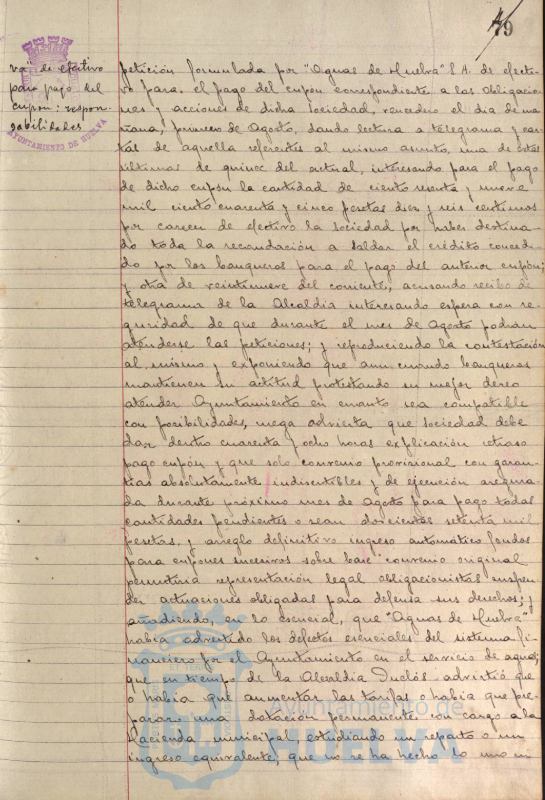 79
va" de efectivo
para pago del
cupon: respon-
sabilidades
AYUNTAMIENTO DE HUELVA
petición formulada por "Aguas de Huelva" S.A. de efecti-
vo para el pago del cupon correspondiente a las obligacio-
nes y acciones de dicha sociedad, vencedero el día de ma-
ñana, primero de Agosto, dando lectura a telegrama y car-
tas de aquella referentes al mismo asunto, una de estas
últimas de quince del actual, interesando para el pago
de dicho cupon la cantidad de ciento noventa y nueve
mil ciento cuarenta y cinco pesetas diez y seis centimos
por carecer de efectivo la sociedad por haber destina-
do toda la recaudación a saldar el crédito concedi-
do por los banqueros para el pago del anterior cupón;
y otra de veintinueve del corriente, acusando recibo de
telegrama de la Alcaldia interesando espera con se-
guridad de que durante el mes de Agosto podrán
atenderse las peticiones; y reproduciendo la contestación
al mismo y exponiendo que aun cuando banqueros
mantienen su actitud protestando su mejor deseo
atender Ayuntamiento en cuanto sea compatible
con posibilidades, ruega advierta que sociedad debe
dar dentro cuarenta y ocho horas explicación retraso
pago cupón y que solo convenio provisional con garan-
tias absolutamente indiscutibles y de ejecución asegura-
da durante próximo mes de Agosto para pago todas
cantidades pendientes o sean doscientas setenta mil
pesetas, y arreglo definitivo ingreso automático fondos
para cupones sucesivos sobre base convenio original
permitiria representación legal obligacionistas suspen-
der actuaciones obligadas para defensa sus derechos; y
añadiendo, en lo esencial, que "Aguas de Huelva"
habia advertido los defectos esenciales del sistema fi-
nanciero por el Ayuntamiento en el servicio de aguas;
que en tiempo de la Alcaldia Duclós advirtió que
o habia que aumentar las tarifas o habia que pre-
parar una dotación permanente con cargo a la
Hacienda municipal estudiando un reparto o un
ingreso equivalente; que no se ha hecho lo uno ni
Ayuntamiento de
HUELVA